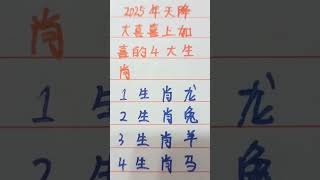 2025年天降
大喜喜上加
喜的4大生
肖
1生肖龙
2生肖兔
3生肖羊
4生肖马